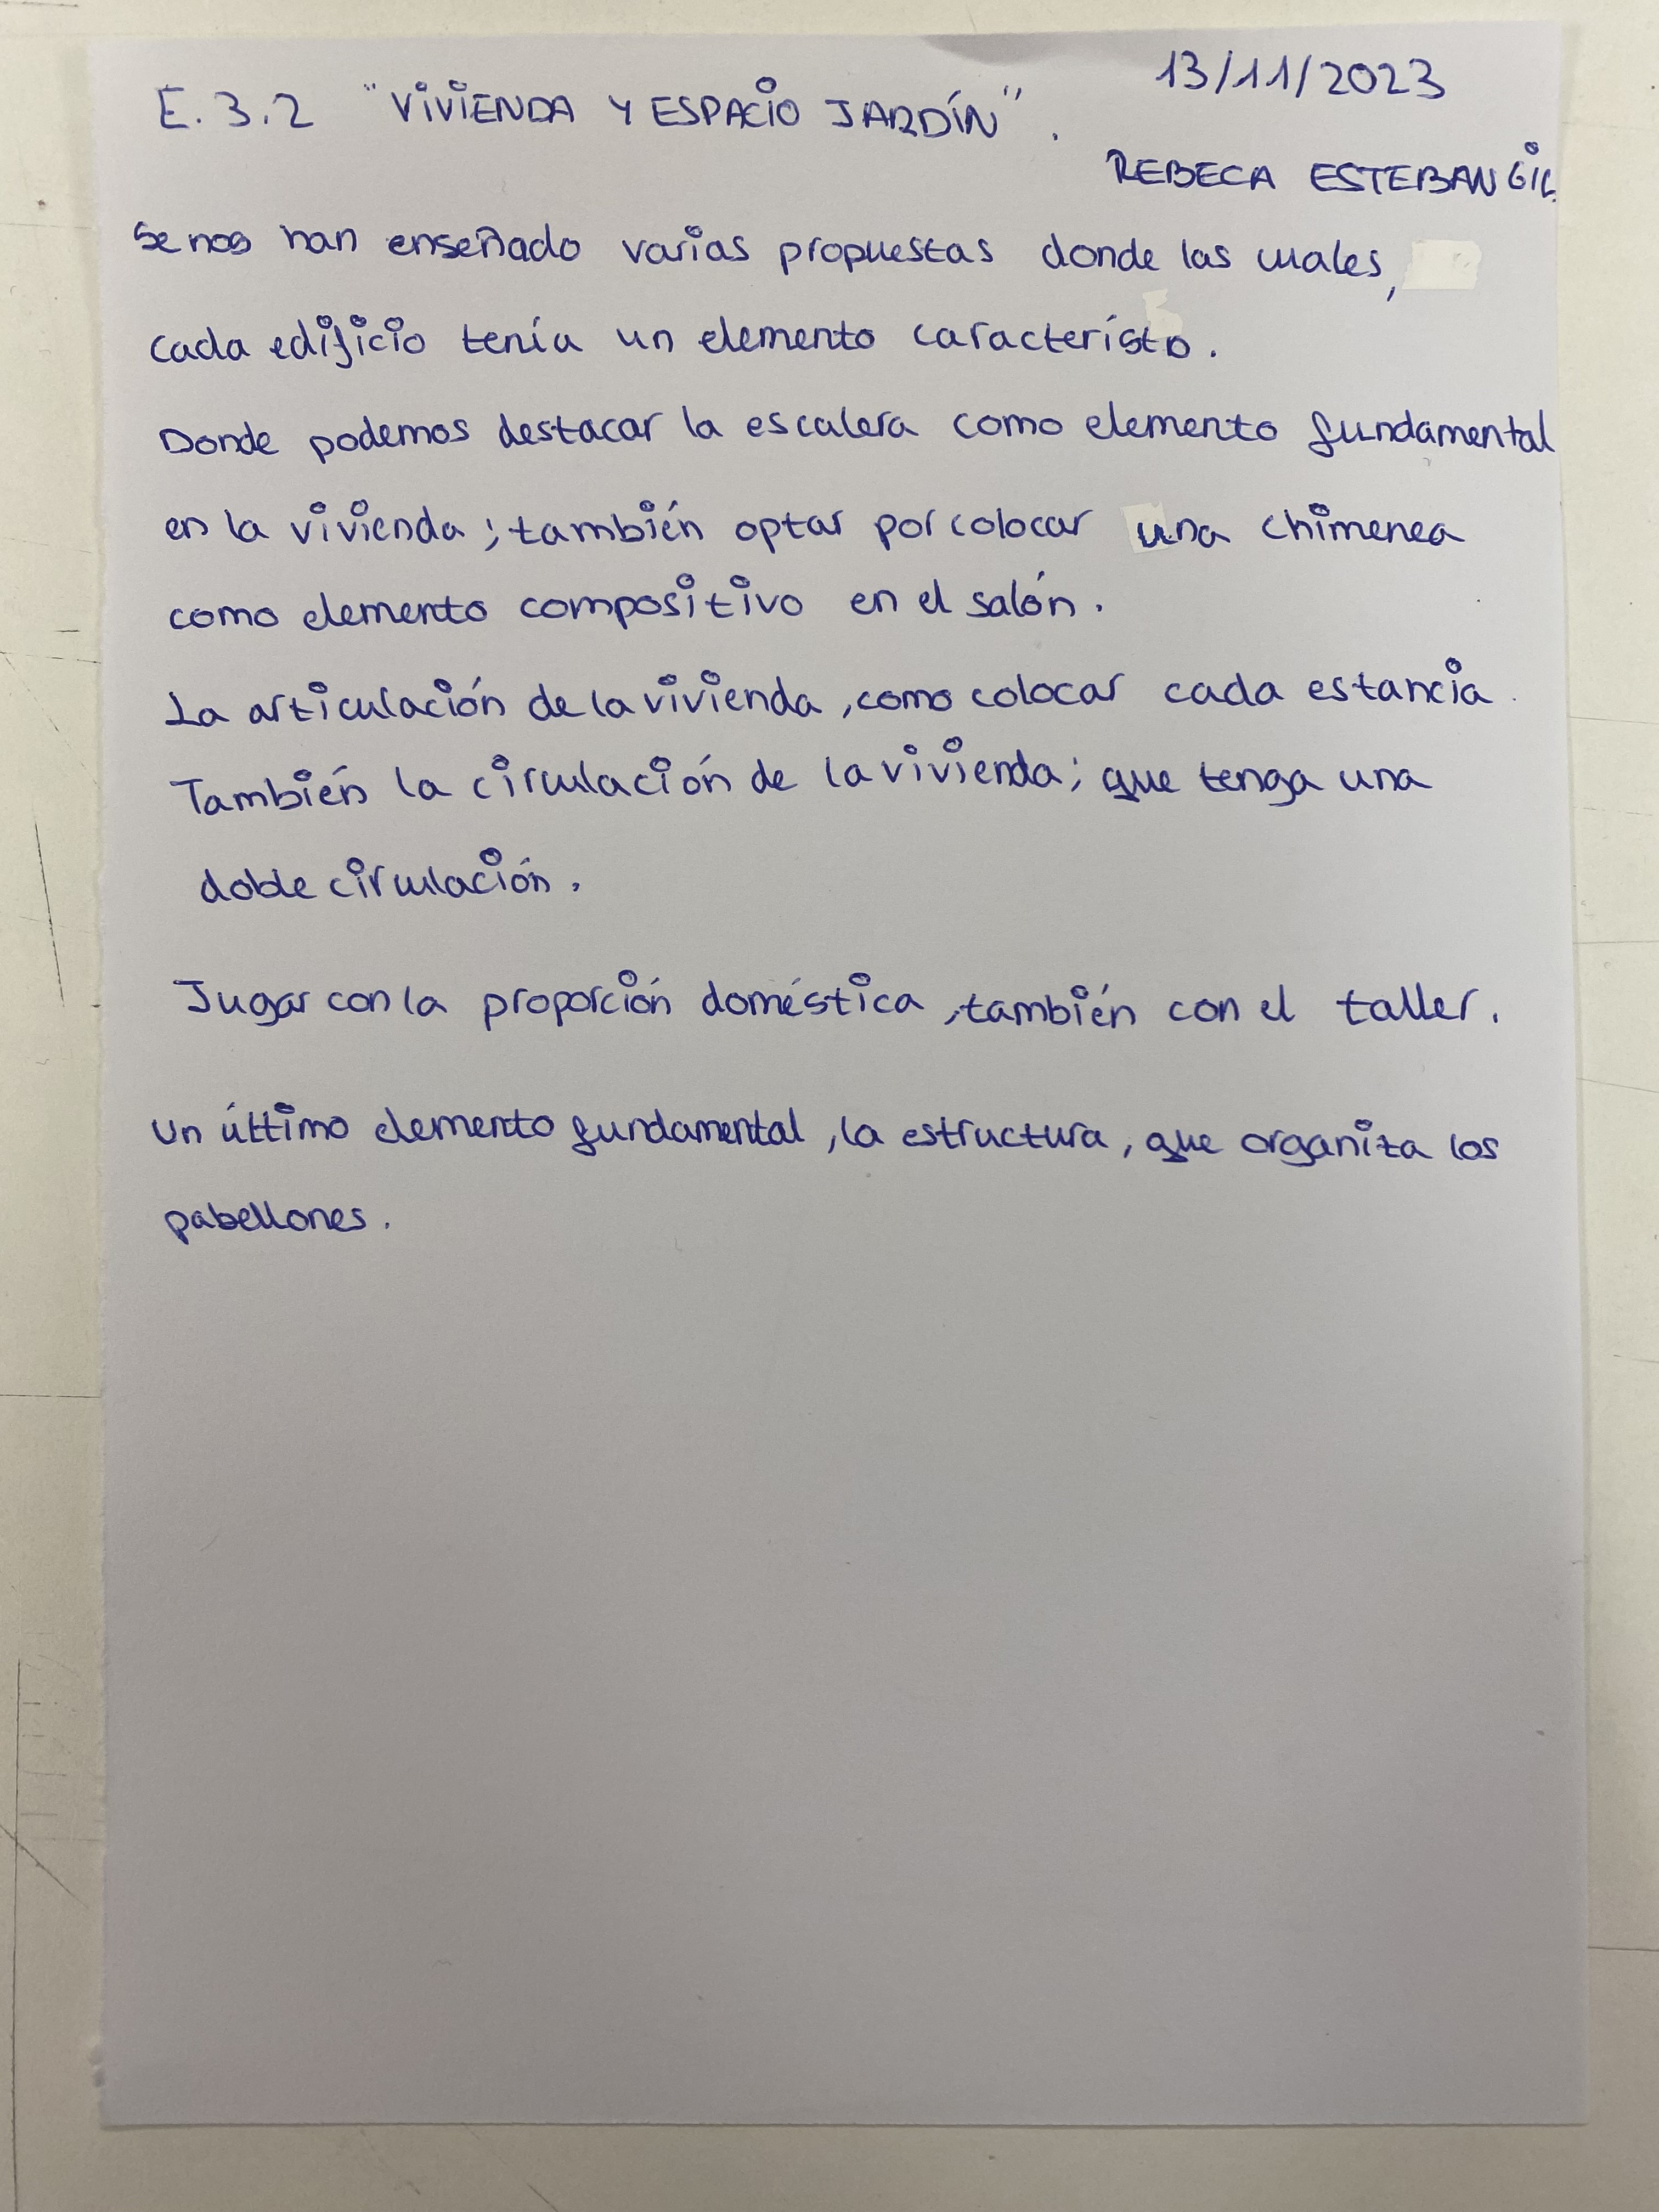 13/11/2023
E.3.2 "VIVIENDA Y ESPACIO JARDÍN".
REBECA ESTEBAN GIL.
Se nos han enseñado varias propuestas donde las cuales,
cada edificio tenía un elemento característo.
Donde podemos destacar la escalera como elemento fundamental
en la vivienda; también optar por colocar una chimenea
como elemento compositivo en el salón.
La articulación de la vivienda, como colocar cada estancia.
También la circulación de la vivienda; que tenga una
doble circulación.
Jugar con la proporción doméstica, también con el taller.
Un último elemento fundamental, la estructura, que organiza los
pabellones.